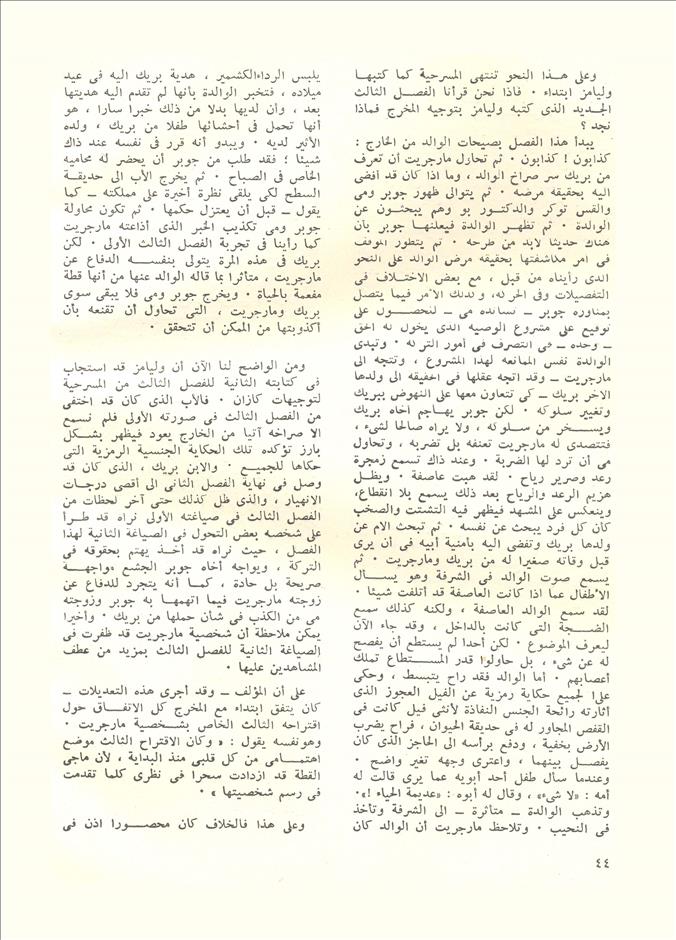 وعلى هذا النحو تنتهى المسرحية كما كتبها
وليامز ابتداء ٠ فاذا نحن قرأنا الفصل الثالث
الجديد الذى كتبه وليامز بتوجيه المخرج فماذا
نجد ؟
يبدأ هذا الفصل بصيحات الوالد من الخارج :
كذابون ! كذابون ٠ ثم تحاول مارجريت أن تعرف
من بريك سر صراخ الوالد ، وما اذا كان قد أفضى
اليه بحقيقه مرضه ٠ ثم يتوالى ظهور جوبر ومى
والقس توكر والدكتور بو وهم يبحثون عن
الوالدة ٠ ثم تظهر الوالدة فيعلنها جوبر بأن
هناك حديثا لابد من طرحه ٠ ثم يتطور الموقف
فى امر مكاشفتها بحقيقه مرض الوالد على النحو
الذى رأيناه من قبل ، مع بعض الاختلاف فى
التفصيلات وفى الحركه، وكذلك الأمر فيما يتصل
بمناوره جوبر ــ تسانده مى ــ للحصول على
توقيع على مشروع الوصيه الذى يخول له الحق
ــ وحده ــ فى التصرف فى أمور التركه ٠ وتبدى
الوالدة نفس الممانعه لهذا المشروع ، وتتجه الى
مارجريت ــ وقد اتجه عقلها فى الحقيقه الى ولدها
الآخر بريك ــ كى تتعاون معها على النهوض ببريك
وتغيير سلوكه ٠ لكن جوبر يهاجم أخاه بريك
ويسخر من سلوكه ، ولا يراه صالحا لشىء ،
فتتصدى له مارجريت تعنفه بل تضربه ، وتحاول
مى أن ترد لها الضربة ٠ وعند ذاك تسمع زمجرة
رعد وصرير رياح ٠ لقد هبت عاصفة ٠ ويظل
هزيم الرعد والرياح بعد ذلك يسمع بلا انقطاع،
وينعكس على المشهد فيظهر فيه التشتت والصخب
كان كل فرد يبحث عن نفسه ٠ ثم تبحث الام عن
ولدها بريك وتفضى اليه بامنية أبيه فى أن يرى
قبل وفاته صغيرا له من بريك ومارجريت ٠ ثم
يسمع صوت الوالد فى الشرفة وهو يسأل
الأطفال عما اذا كانت العاصفة قد أتلفت شيئا ٠
لقد سمع الوالد العاصفة ، ولكنه كذلك سمع
الضجة التى كانت بالداخل ، وقد جاء الآن
ليعرف الموضوع ٠ لكن أحدا لم يستطع أن يفصح
له عن شىء ، بل حاولوا قدر المستطاع تملك
أعصابهم ٠ أما الوالد فقد راح يتبسط ، وحكى
علنا لجميع حكاية رمزية عن الفيل العجوز الذى
أثارته رائحة الجنس النفاذة لأنثى فيل كانت فى
القفص المجاور له فى حديقة الحيوان ، فراح يضرب
الأرض بخفية ، ودفع برأسه الى الحاجز الذى كان
يفصل بينهما ، واعترى وجهه تغير واضح ٠
وعندما سأل طفل أحد أبويه عما يرى قالت له
أمه : «لا شىء» ، وقال له أبوه : «عديمة الحياء !»٠
وتذهب الوالدة ــ متأثرة ــ الى الشرفة وتأخذ
فى النحيب ٠ وتلاحظ مارجريت أن الوالد كان
يلبس الرداءالكشمير ، هدية بريك اليه فى عيد
ميلاده ، فتخبر الوالدة بأنها لم تقدم اليه هديتها
بعد ، وأن لديها بدلا من ذلك خبرا سارا ، هو
أنها تحمل فى أحشائها طفلا من بريك ، ولده
الأثير لديه ٠ ويبدو أنه قرر فى نفسه عند ذاك
شيئا ؛ فقد طلب من جوبر أن يحضر له محاميه
الخاص فى الصباح ٠ ثم يخرج الأب الى حديقة
السطح لكى يلقى نظرة أخيرة على مملكته ــ كما
يقول ــ قبل أن يعتزل حكمها ٠ ثم تكون محاولة
جوبر ومى تكذيب الخبر الذى أذاعته مارجريت
كما رأينا فى تجربة الفصل الثالث الأولى ٠ لكن
بريك فى هذه المرة يتولى بنفسه الدفاع عن
مارجريت ، متأثرا بما قاله الوالد عنها من أنها قطة
مفعمة بالحياة ٠ ويخرج جوبر ومى فلا يبقى سوى
بريك ومارجريت ، التى تحاول أن تقنعه بأن
أكذوبتها من الممكن أن تتحقق ٠
ومن الواضح لنا الآن أن وليامز قد استجاب
فى كتابته الثانية للفصل الثالث من المسرحية
لتوجيهات كازان ٠ فالأب الذى كان قد اختفى
من الفصل الثالث فى صورته الأولى فلم نسمع
الا صراخه آتيا من الخارج يعود فيظهر بشكل
بارز تؤكده تلك الحكاية الجنسية الرمزية التى
حكاها للجميع ٠ والابن بريك ، الذى كان قد
وصل فى نهاية الفصل الثانى الى أقصى درجات
الانهيار ، والذى ظل كذلك حتى آخر لحظات من
الفصل الثالث فى صياغته الأولى نراه قد طرأ
على شخصه بعض التحول فى الصياغة الثانية لهذا
الفصل ، حيث نراه قد أخذ يهتم بحقوقه فى
التركة ، ويواجه أخاه جوبر الجشع مواجهة
صريحة بل حادة ، كما أنه يتجرد للدفاع عن
زوجته مارجريت فيما اتهمها به جوبر وزوجته
مى من الكذب فى شأن حملها من بريك ٠ وأخيرا
يمكن ملاحظة أن شخصية مارجريت قد ظفرت فى
الصياغة الثانية للفصل الثالث بمزيد من عطف
المشاهدين عليها ٠
على أن المؤلف ــ وقد أجرى هذه التعديلات ــ
كان يتفق ابتداء مع المخرج كل الاتفاق حول
اقتراحه الثالث الخاص بشخصية مارجريت ٠
وهونفسه يقول : « وكان الاقتراح الثالث موضع
اهتمامى من كل قلبى منذ البداية ، لأن ماجى
القطة قد ازدادت سحرا فى نظرى كلما تقدمت
فى رسم شخصيتها » ٠
وعلى هذا فالخلاف كان محصورا اذن فى
٤٤